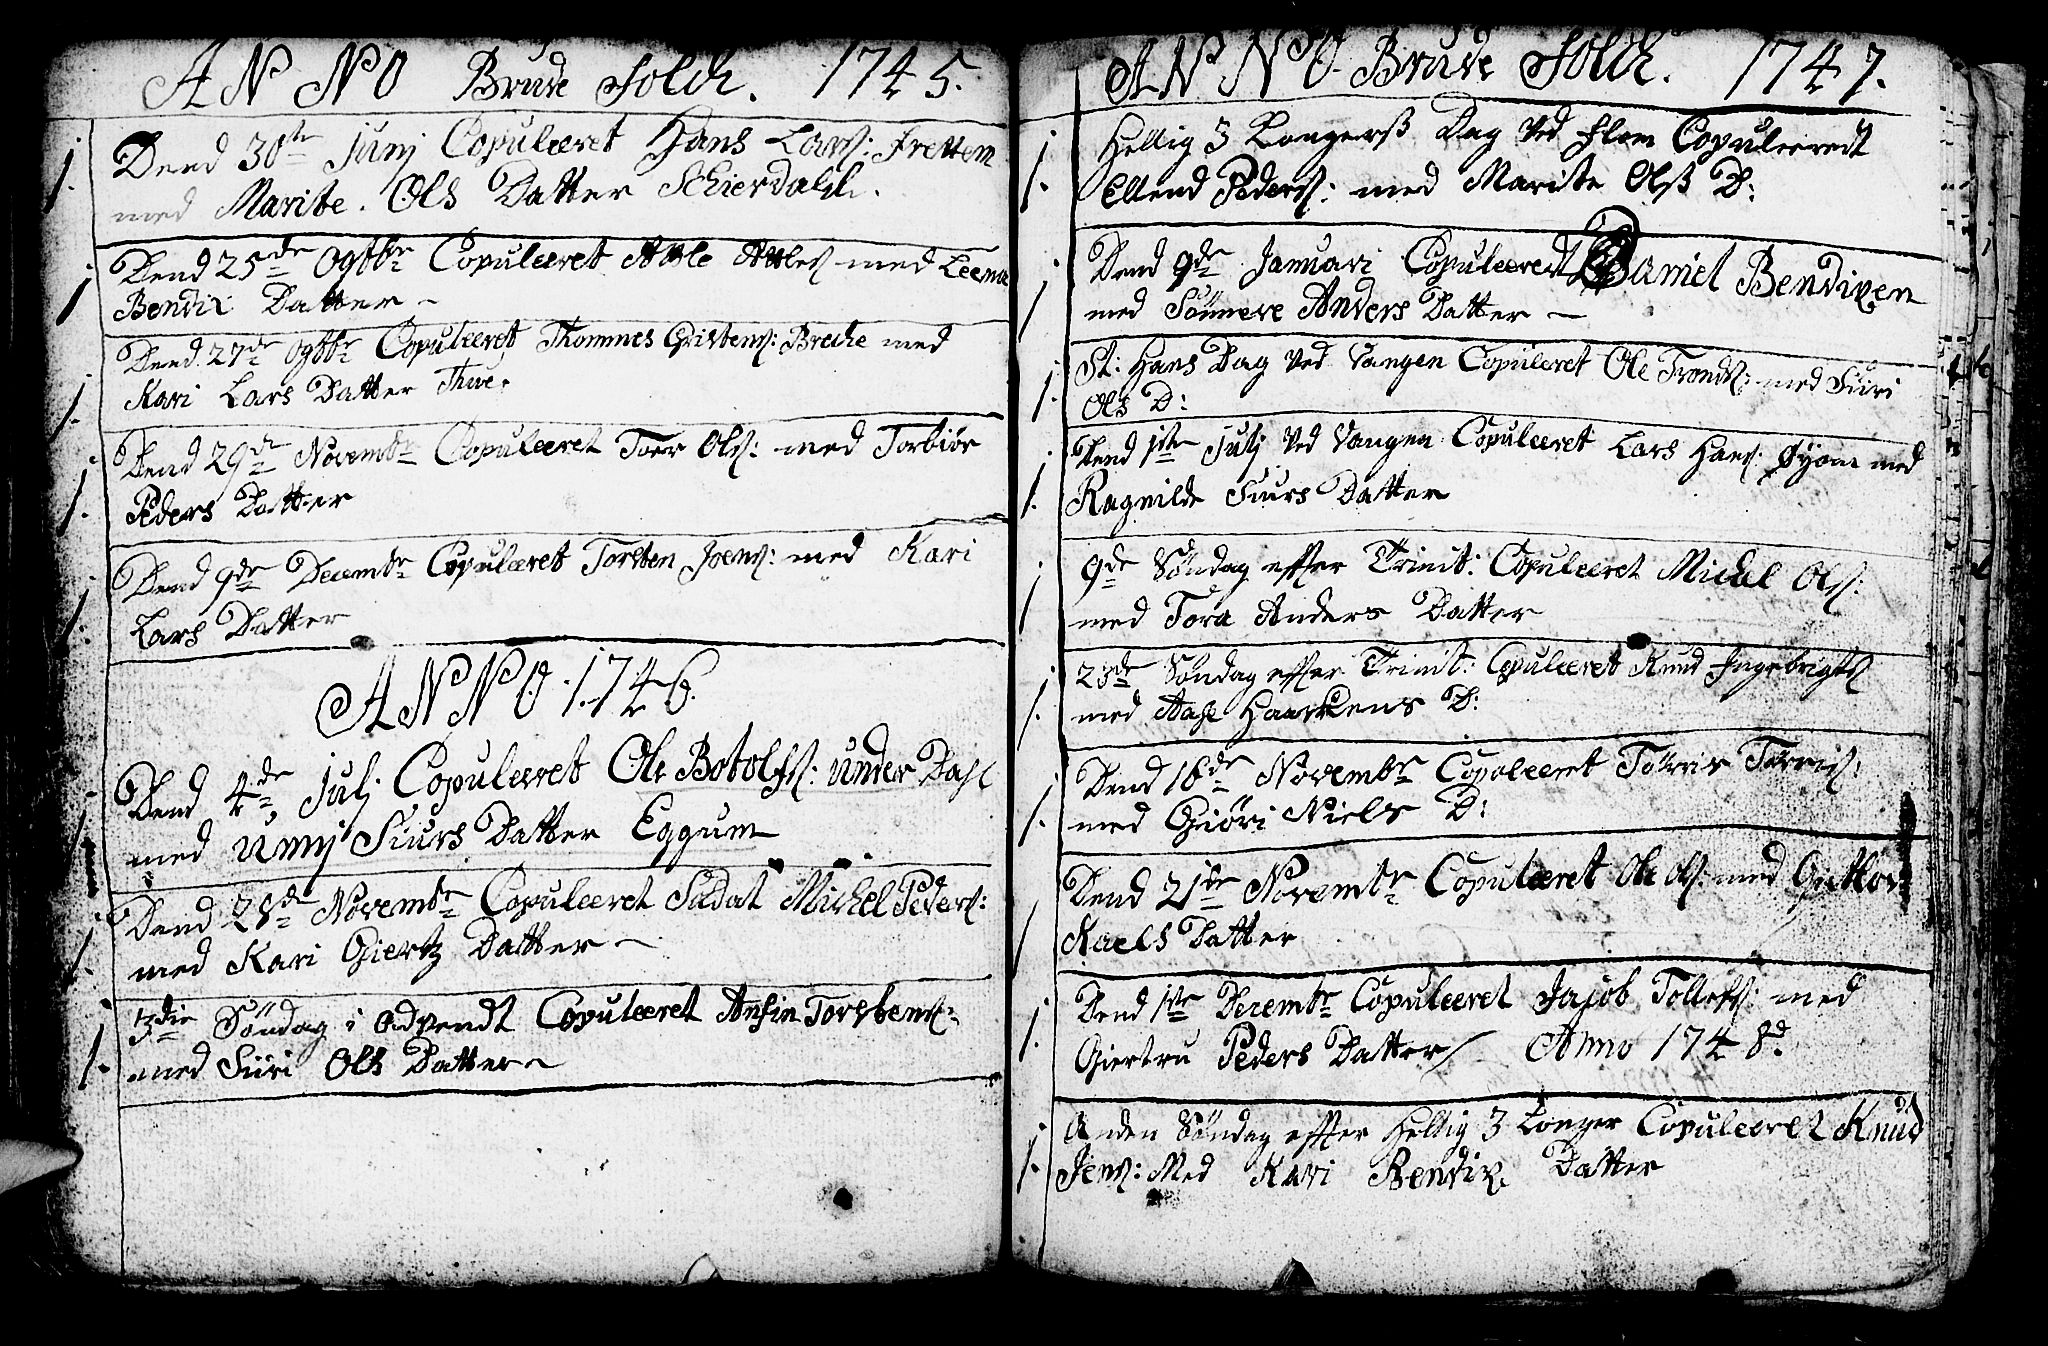 ANNO Brude Folck. 1745.
1. Dend 30te Junj Copuleret Hans Lars: Frettem
med Marite Ols Datter Schierdahl.
1 Dend 25de Ogtbr Copuleret Atle Atles med
Bendix Datter -
1. Dend 27de Ogtbr Copuleret Thommes Cristens: Breche med
Kari Lars Datter Thue.
1. Dend 29de Novembr Copuleret Toer Ols: med Torbiør
Peders Datter
1. Dend 9de Decembr Copuleret Torsten Joens: med Kari
Lars Datter
ANNO 1746.
1 Dend 4de Julj Copuleret Ole Botolfs: under Dahl
med Unnj Siurs Datter Eggum
1. Dend 28de Novembr Copuleret Soldat Michel Peders:
med Kari Giertz Datter -
1. 3die Søndag i Advendt Copuleret Ansin Torstens:
med Siiri Ols Datter -
ANNO Brude Folck. 1747.
1. Hellig 3 Longerss Dag ved Flom Copuleeredt
Ellend Peders: med Marite Olss D:
1 Dend 9de Januari Copuleeredt Daniel Bendixen
med Sønneve Anders Datter -
1. St: Hans Dag ved Vangen Copuleret Ole Tronds: med Siiri
Ols D:
1. Dend 1ste Julj ved Vangen Copuleeret Lars Hans: Øyom med
Ragnilde Siurs Datter
1 9de Søndag effter Trinit: Copuleeret Michel Ols:
med Tora Anders Datter
1. 23de Søndag effter Trinit: Copuleret Knud Ingebrigts
med Aase Haackens D:
1. Dend 16de Novembr Copoleeret Torris Torris:
med Giøri Niels D:
1 Dend 21de Novembr Copuleeret Ole Ols: med
Kaels Datter
1. Dend 1ste Decembr Copuleeret Jacob Tollefs: med
Giertru Peders Datter / - Anno 1748d.
1. Anden Søndag effter Hellig 3 Longer Copuleeret Knud
Jens: Med Kari Bendix Datter